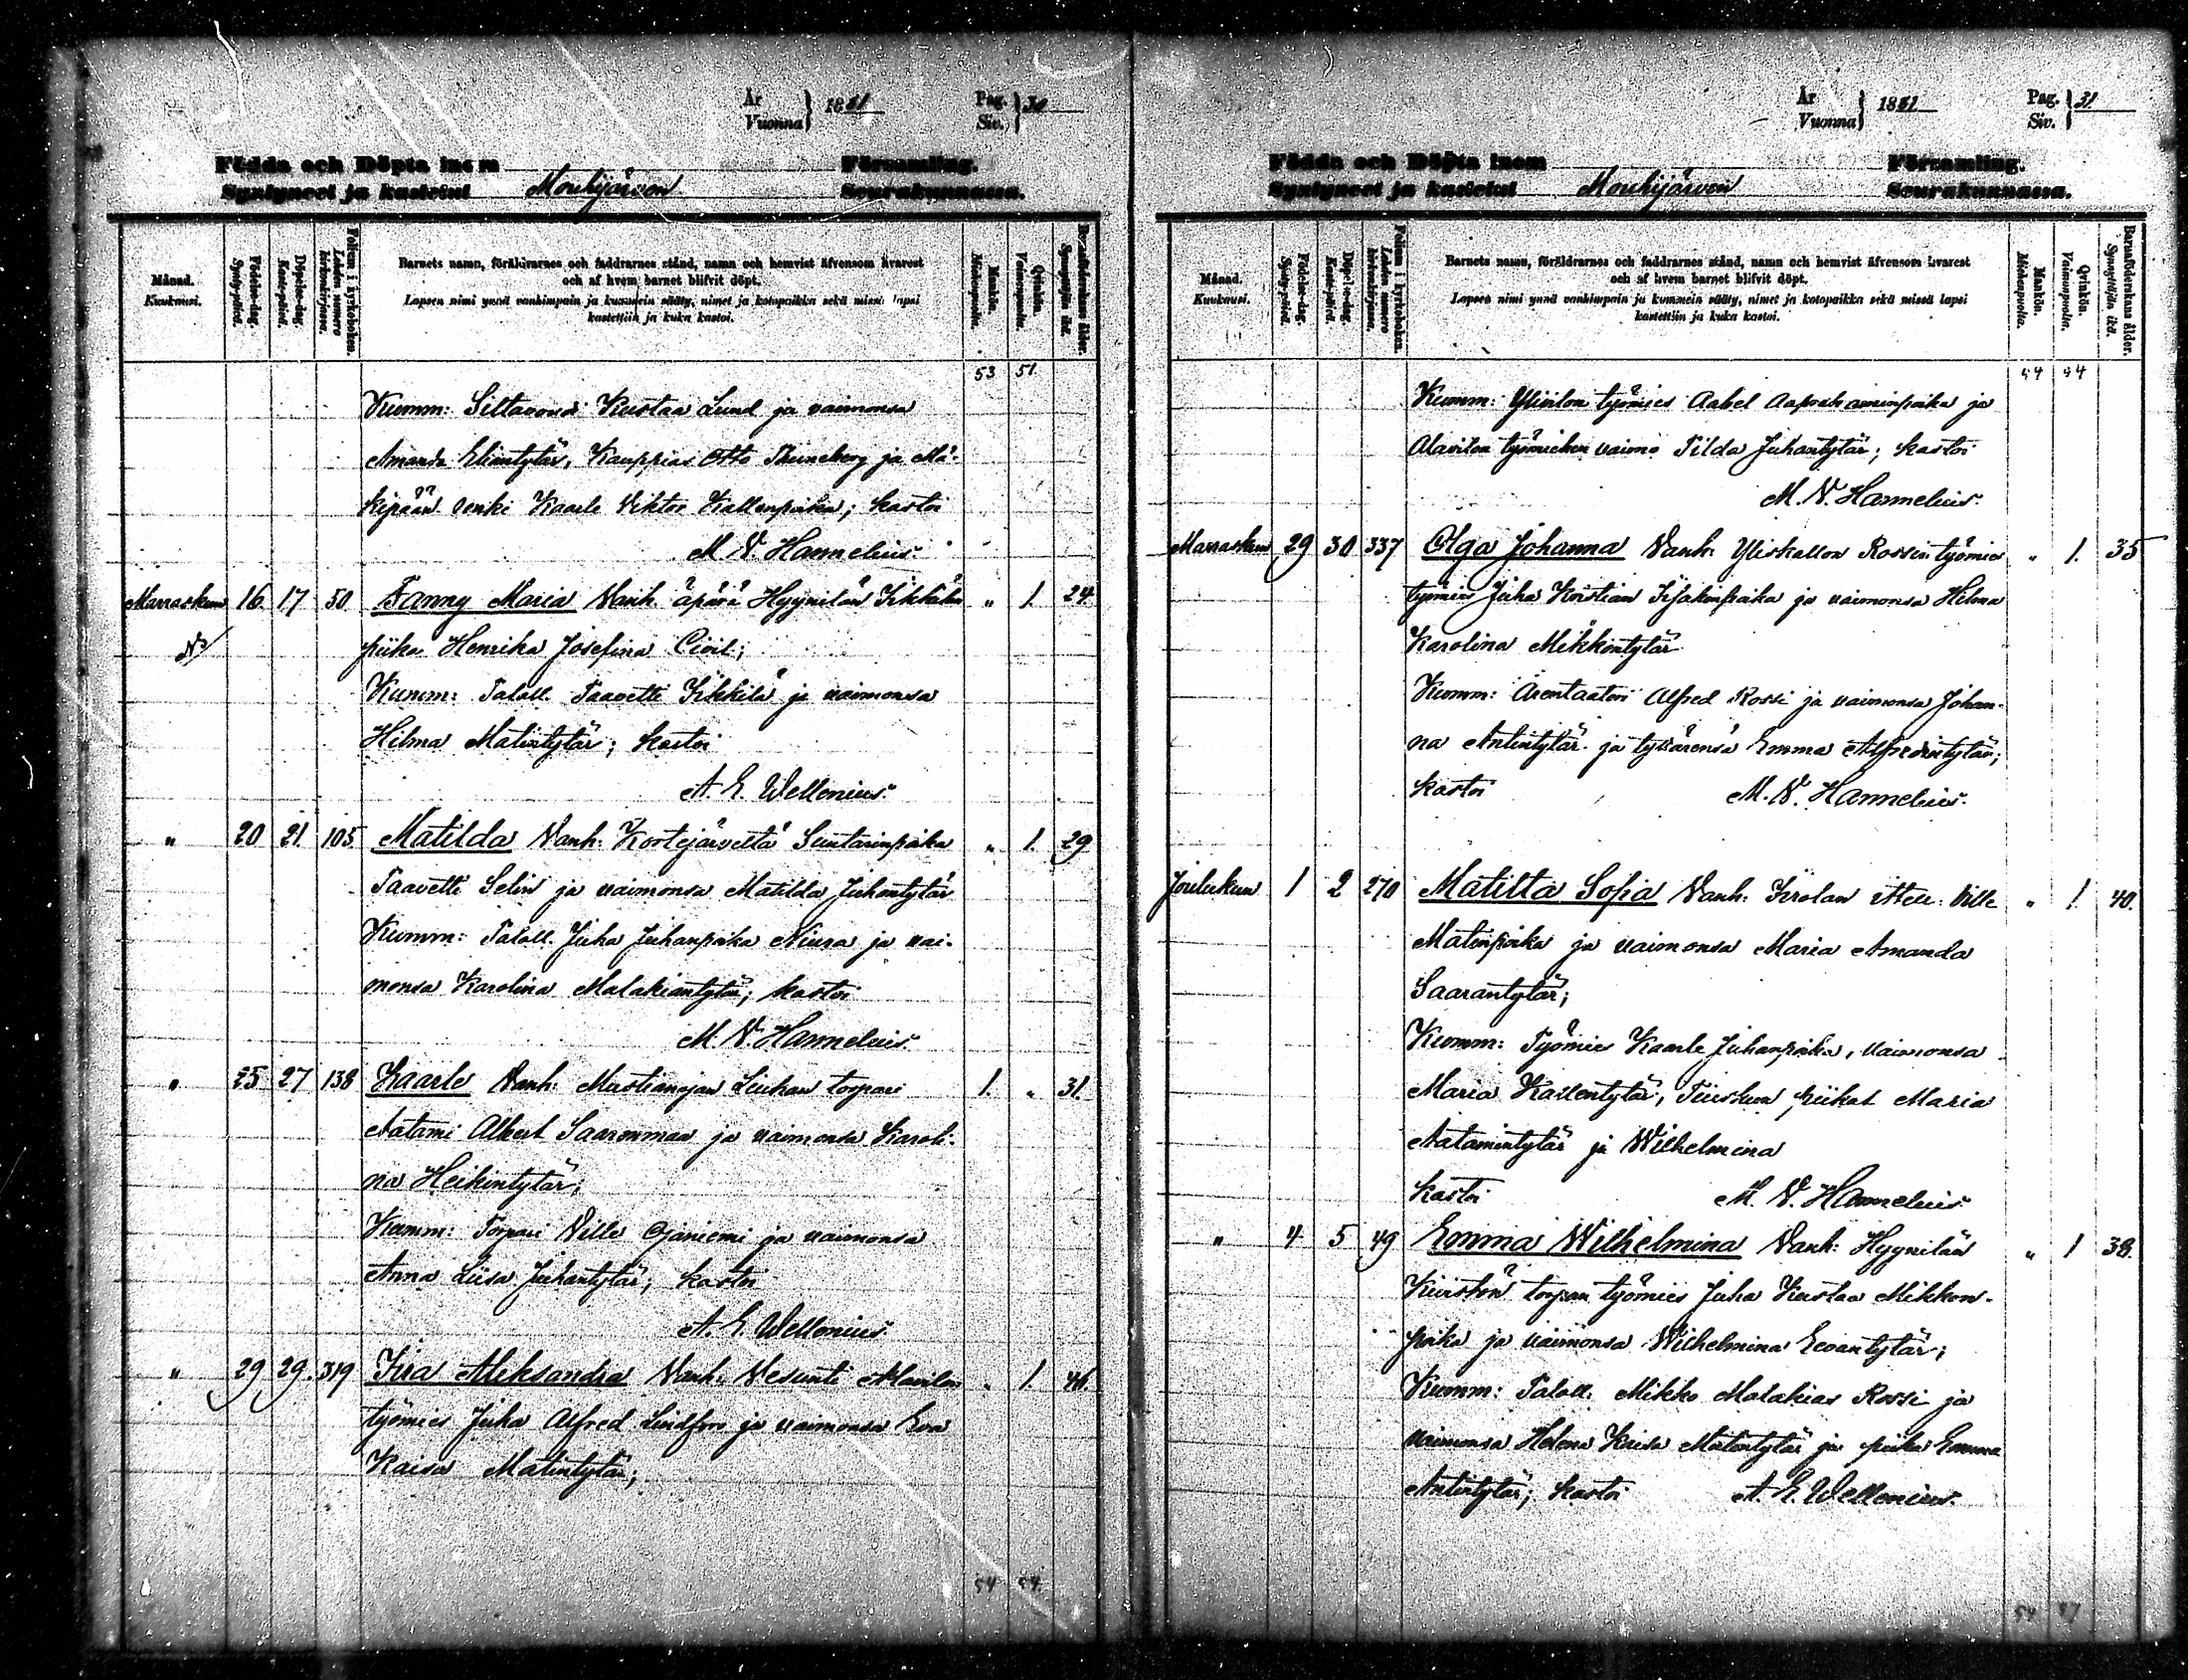 År
Vuonna } 1881
Pag.
Siv. } 30
Födda och Döpta inom Församling.
Syntyneet ja kastetut Mouhijärven Seurakunnassa.
Månad.
Kuukausi.
Födelse-dag.
Syntypäivä.
Döpelse-dag.
Kaste-päivä.
Folium i kyrkoboken.
Lehden numero
kirkonkirjassa.
Barnets namn, föräldrarnes och faddrarnes stånd, namn och hemvist äfvensom hvarest
och af hvem barnet blifvit döpt.
Lapsen nimi ynnä vanhimpain ja kummein sääty, nimet ja kotopaikka sekä missä lapsi
kastettiin ja kuka kastoi.
Mankön.
Miehenpuolia.
Qvinkön.
Vaimonpuolia.
Barnaföderskans ålder.
Synnyttäjän ikä.
53 51
Kumm: Siltavouti Kustaa Lund ja vaimonsa
Amanda Eliantytär, Kauppias Otto Thuneberg ja Mä-
kipään renki Kaarle Viktor Kallenpoika; kastoi
M. V. Hannelius.
Marraskuu 16 17 50 Fanny Maria Vanh. äpärä Hyynilän Sikkilän " 1. 24
piika Henrika Josefina
Kumm: Taloll. Taavetti Sikkilä ja vaimonsa
Hilma Matintytär; kastoi
A. E. Wellenius.
" 20 21 105 Matilda Vanh: Kortejärveltä Suntarinpoika " 1. 29
Taavetti Selin ja vaimonsa Matilda Juhantytär
Kumm: Taloll. Juha Juhanpoika Niura ja vai-
monsa Karolina Malakiantytär; kastoi
M. V. Hannelius.
" 25 27 138 Kaarle Vanh: Mustianojan Liuhan torpari 1. " 31.
Aatami Albert Saarenmaa ja vaimonsa Karoli-
na Heikintytär;
Kumm: Torpari Ville Ojaniemi ja vaimonsa
Anna Liisa Juhantytär; kastoi
A. E. Wellenius.
" 29 29 319 Iira Aleksandra Vanh: Vesunti Alavilan " 1. 46
työmies Juha Alfred Lindfors ja vaimonsa Eva
Kaisa Matintytär;
54 54
År
Vuonna } 1881
Pag.
Siv. } 31
Födda och Döpta inom Församling.
Syntyneet ja kastetut Mouhijärven Seurakunnassa.
Månad.
Kuukausi.
Födelse-dag.
Syntypäivä.
Döpelse-dag.
Kaste-päivä.
Folium i kyrkoboken.
Lehden numero
kirkonkirjassa.
Barnets namn, föräldrarnes och faddrarnes stånd, namn och hemvist äfvensom hvarest
och af hvem barnet blifvit döpt.
Lapsen nimi ynnä vanhimpain ja kummein sääty, nimet ja kotopaikka sekä missä lapsi
kastettiin ja kuka kastoi.
Mankön.
Miehenpuolia.
Qvinkön.
Vaimonpuolia.
Barnaföderskans ålder.
Synnyttäjän ikä.
54 54
Kumm: Ylivilon työmies Aabel Aaprahaminpoika ja
Alavilon työmiehen vaimo Tilda Juhantytär; kastoi
M. V. Hannelius.
Marraskuu 29 30 337 Olga Johanna Vanh: Yliskallon Rossin työmies " 1. 35
työmies Juha Kristian Iisakinpoika ja vaimonsa Hilma
Karolina Mikkintytär
Kumm: Arentaatori Alfred Rossi ja vaimonsa Johan-
na Antintytär ja tyttärensä Emma Alfredintytär;
kastoi M. V. Hannelius.
Joulukuu 1 2 270 Matilta Sofia Vanh: Ville " 1. 40.
Matinpoika ja vaimonsa Maria Amanda
Saarantytär;
Kumm: Työmies Kaarle Juhanpoika, vaimonsa
Maria Kallentytär, piikat Maria
Aatamintytär ja Wilhelmina
kastoi M. V. Hannelius.
" 4 5 49 Emma Wilhelmina Vanh: Hyynilän " 1 38.
torpan työmies Juha Kustaa Mikkon-
poika ja vaimonsa Wilhelmina Eevantytär;
Kumm: Taloll. Mikko Malakias Rossi ja
vaimonsa Helena Kaisa Matintytär ja piika Emma
Antintytär; kastoi A. E. Wellenius.
54 57